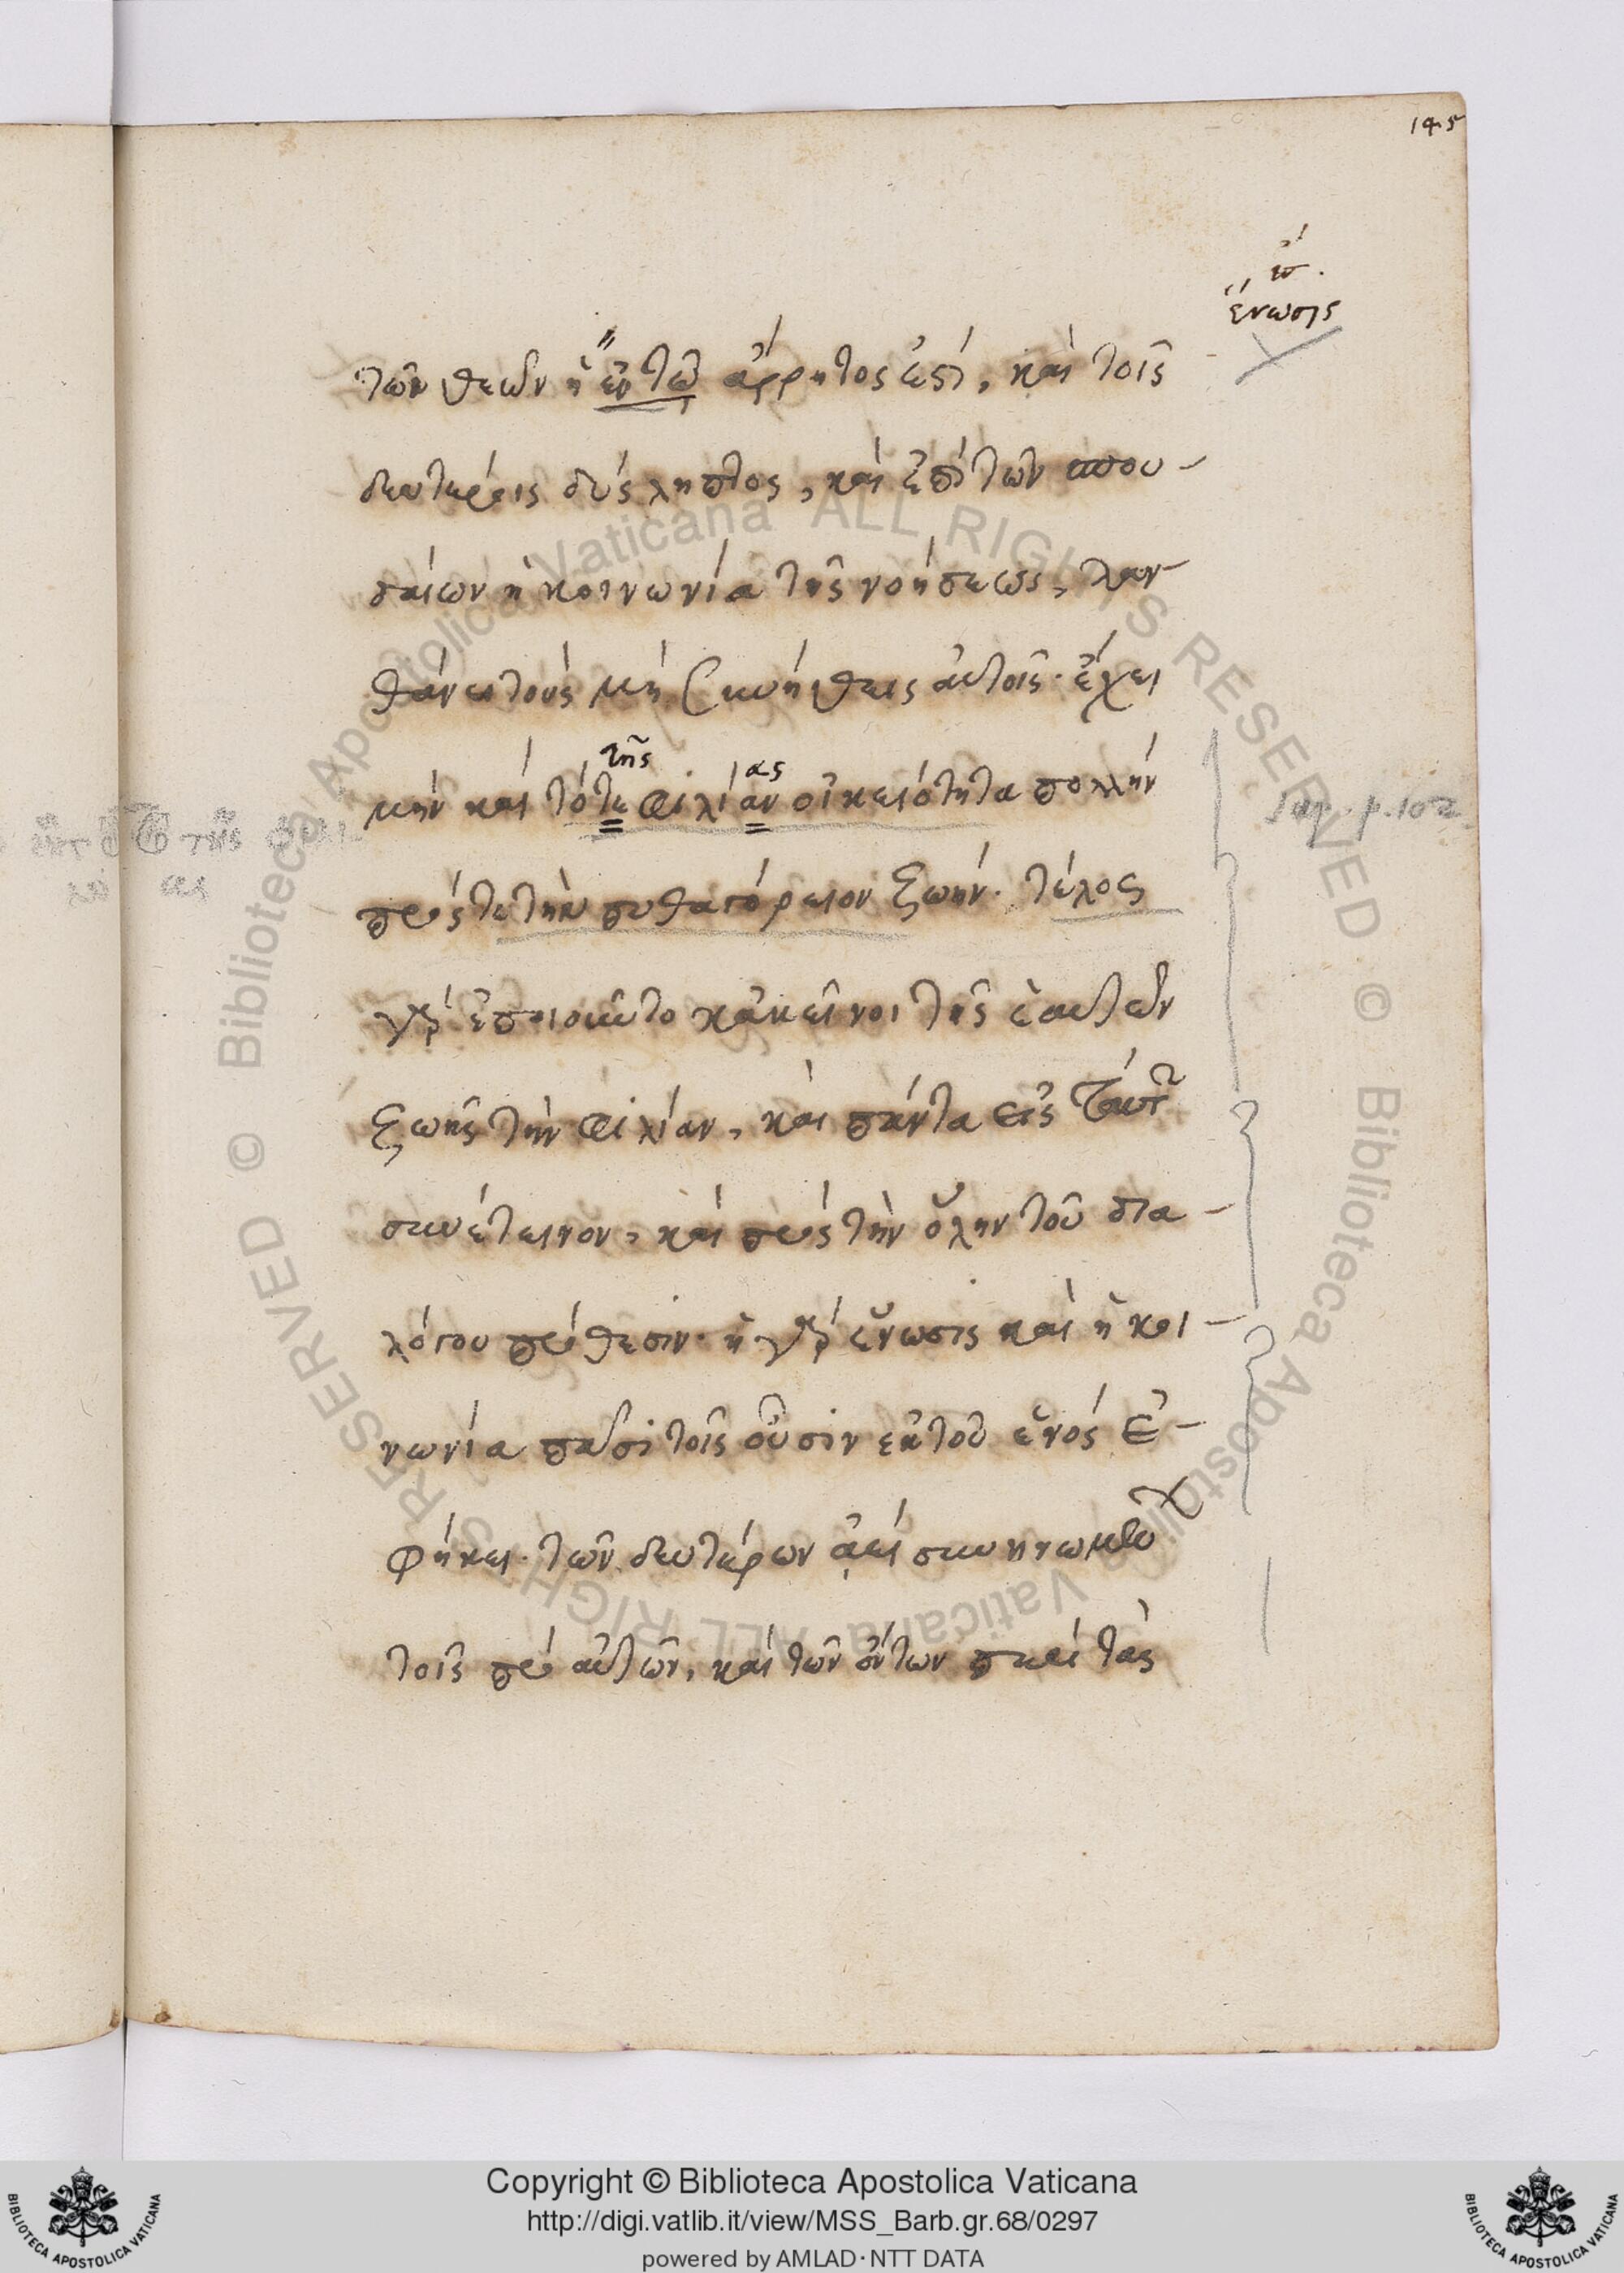 145
ἕνωσις
τῶν θεῶν ἡ ἐν τῷ ἄρρητος ἐστί, καὶ τοῖς
δευτέροις δύσληπτος, καὶ ἐπὶ τῶν σπου-
δαίων ἡ κοινωνία τῆς νοήσεως, λαν-
θάνει τοὺς μὴ συνήθεις αὐτοῖς· ἔχει
τῆς ας
μὴν καὶ τότε φιλίαν οἰκειότητα πολλὴν
πρός τε τὴν πυθαγόρειον ζωήν. τέλος
γὰρ ἐποιοῦντο κἀκεῖνοι τῆς ἑαυτῶν
ζωῆς τὴν φιλίαν, καὶ πάντα εἰς ταύτην
συνέτεινον, καὶ πρὸς τὴν ὅλην τοῦ δια-
λόγου πρόθεσιν· ἡ γὰρ ἕνωσις καὶ ἡ κοι-
νωνία πᾶσι τοῖς οὖσιν ἐκ τοῦ ἑνὸς ἐ-
φήκει· τῶν δευτέρων ἀεὶ συνηνωμένων
τοῖς πρὸ αὐτῶν, καὶ τῶν ὄντων περὶ τὰς
p. 102
Copyright © Biblioteca Apostolica Vaticana
http://digi.vatlib.it/view/MSS_Barb.gr.68/0297
powered by AMLAD · NTT DATA
BIBLIOTECA APOSTOLICA VATICANA
BIBLIOTECA APOSTOLICA VATICANA
© Biblioteca Apostolica Vaticana ALL RIGHTS RESERVED © Biblioteca Apostolica Vaticana ALL RIGHTS RESERVED